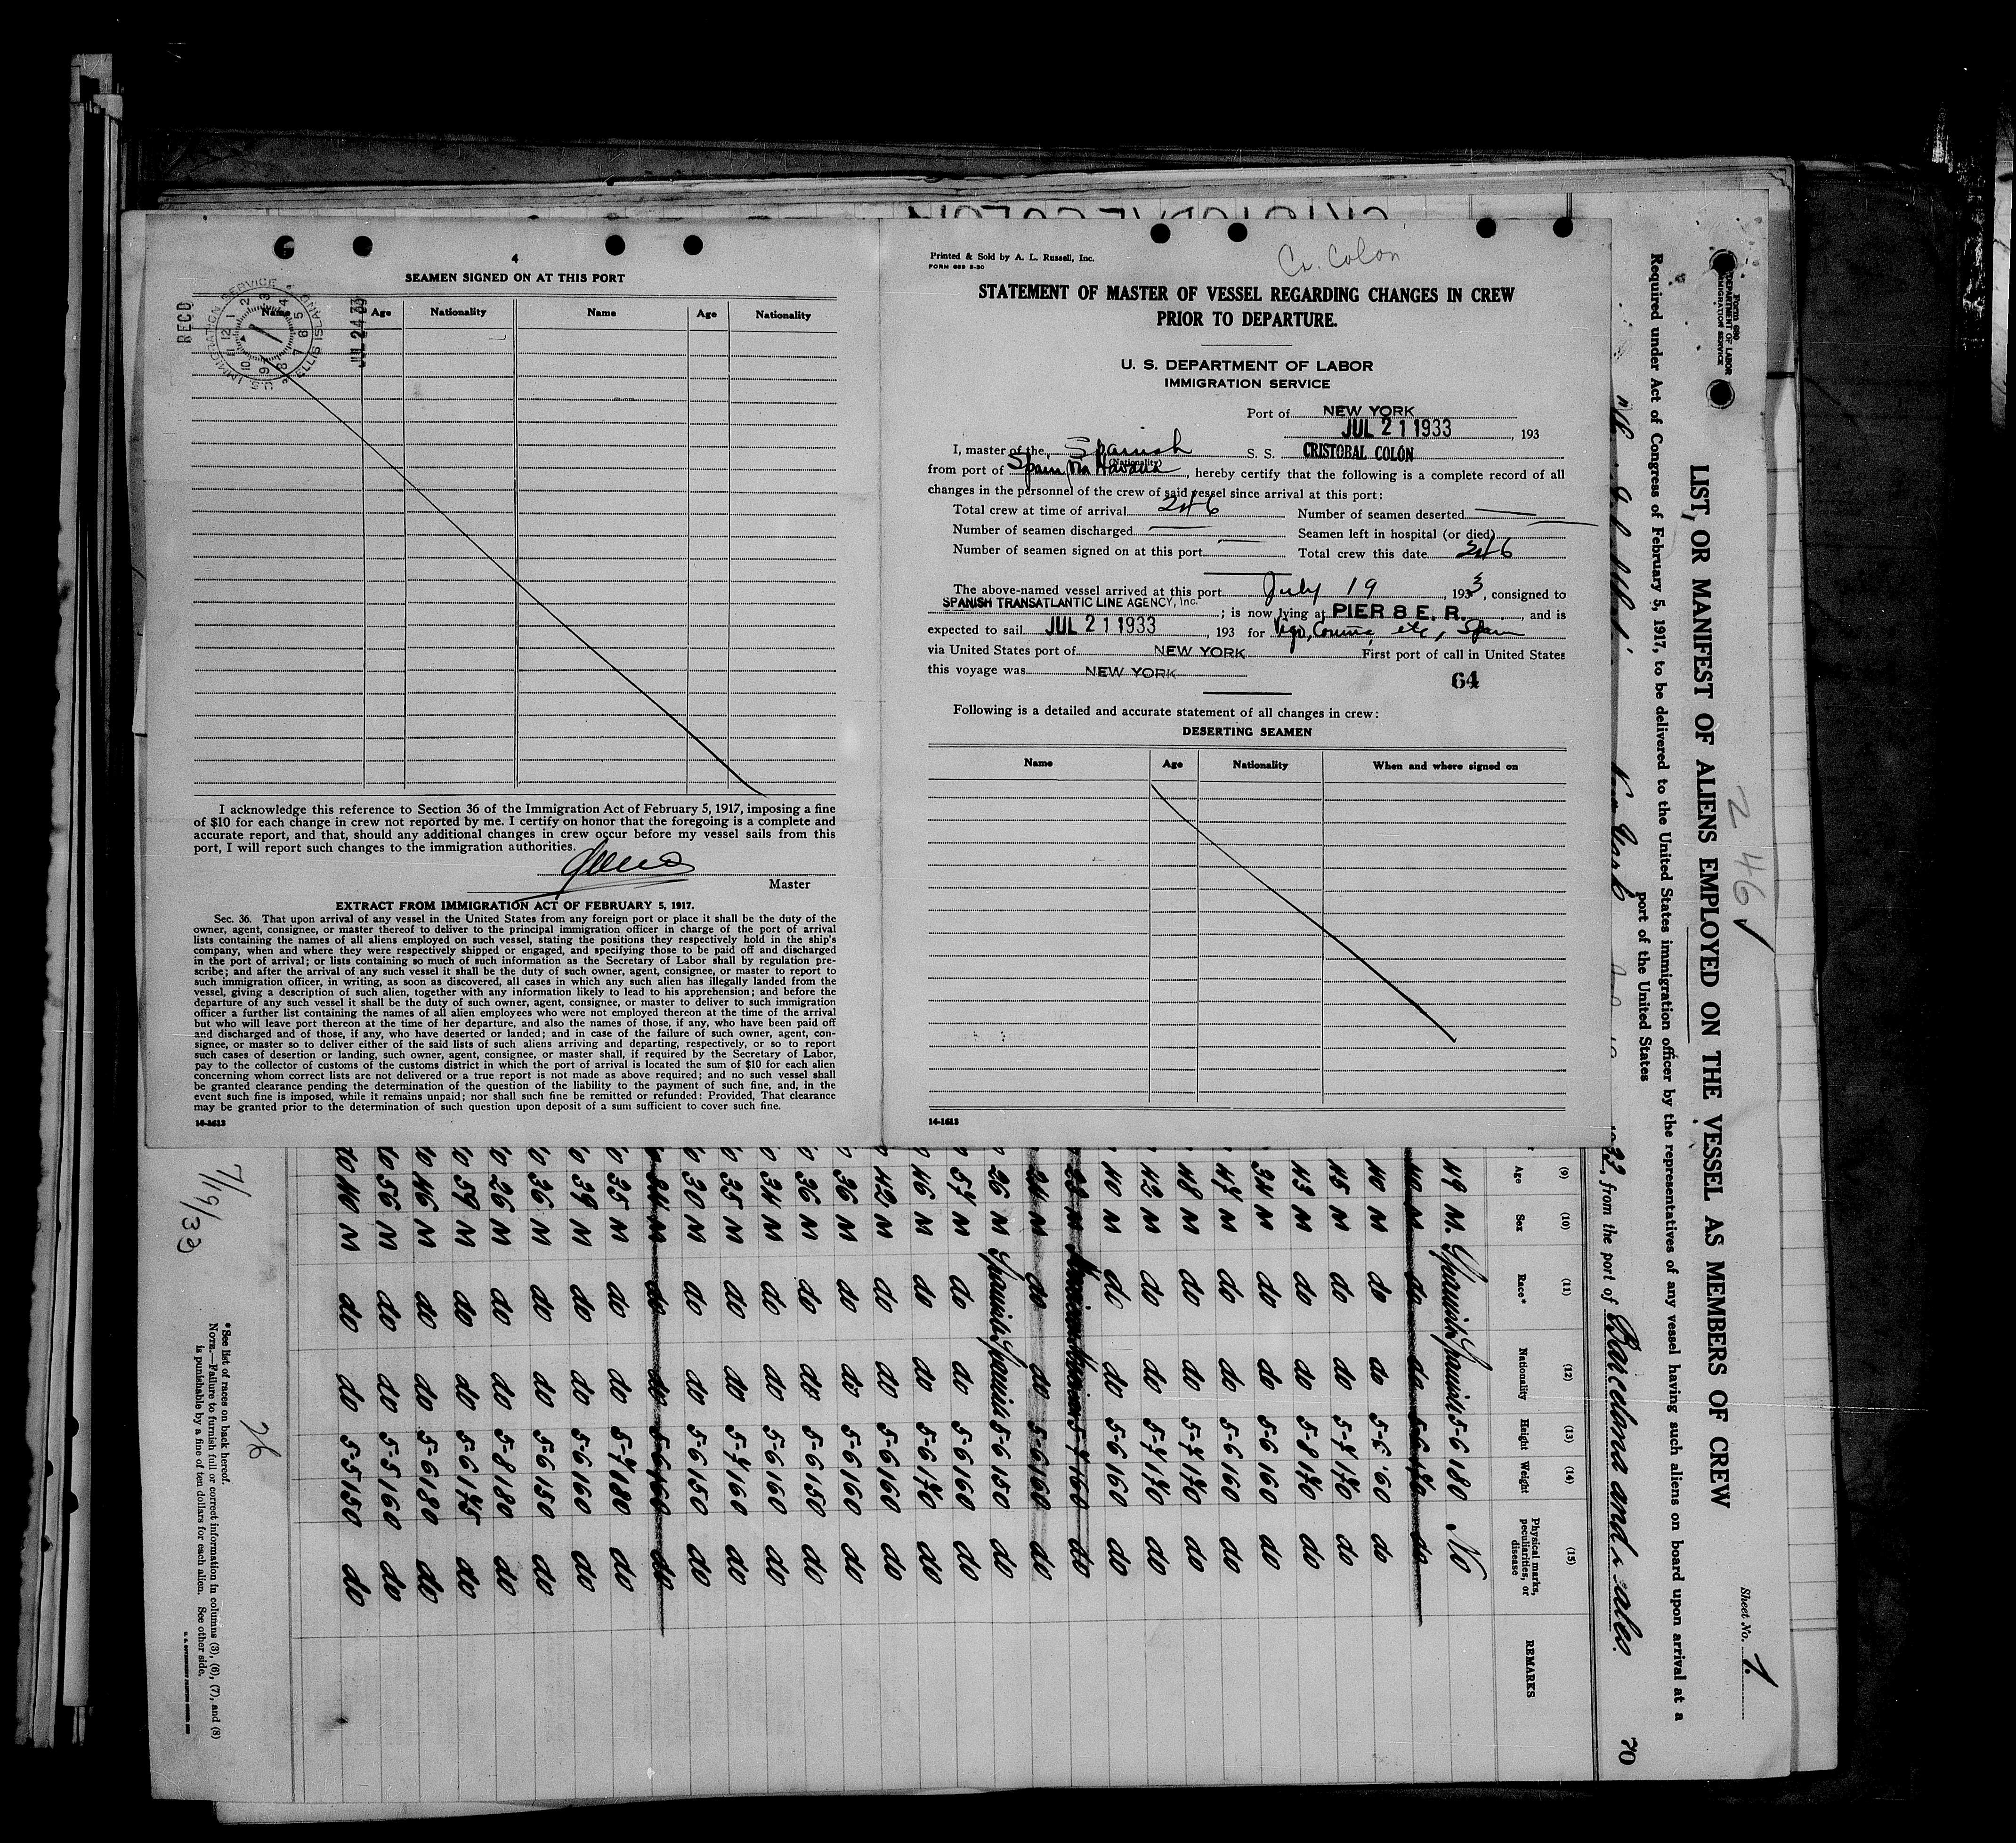 4
SEAMEN SIGNED ON AT THIS PORT
RECD
U.S. IMMIGRATION SERVICE ELLIS ISLAND
JUL 24 33
Name Age Nationality Name Age Nationality
I acknowledge this reference to Section 36 of the Immigration Act of February 5, 1917, imposing a fine
of $10 for each change in crew not reported by me. I certify on honor that the foregoing is a complete and
accurate report, and that, should any additional changes in crew occur before my vessel sails from this
port, I will report such changes to the immigration authorities.
Master
EXTRACT FROM IMMIGRATION ACT OF FEBRUARY 5, 1917.
Sec. 36. That upon arrival of any vessel in the United States from any foreign port or place it shall be the duty of the
owner, agent, consignee, or master thereof to deliver to the principal immigration officer in charge of the port of arrival
lists containing the names of all aliens employed on such vessel, stating the positions they respectively hold in the ship's
company, when and where they were respectively shipped or engaged, and specifying those to be paid off and discharged
in the port of arrival; or lists containing so much of such information as the Secretary of Labor shall by regulation pre-
scribe; and after the arrival of any such vessel it shall be the duty of such owner, agent, consignee, or master to report to
such immigration officer, in writing, as soon as discovered, all cases in which any such alien has illegally landed from the
vessel, giving a description of such alien, together with any information likely to lead to his apprehension; and before the
departure of any such vessel it shall be the duty of such owner, agent, consignee, or master to deliver to such immigration
officer a further list containing the names of all alien employees who were not employed thereon at the time of the arrival
but who will leave port thereon at the time of her departure, and also the names of those, if any, who have been paid off
and discharged and of those, if any, who have deserted or landed; and in case of the failure of such owner, agent, con-
signee, or master so to deliver either of the said lists of such aliens arriving and departing, respectively, or so to report
such cases of desertion or landing, such owner, agent, consignee, or master shall, if required by the Secretary of Labor,
pay to the collector of customs of the customs district in which the port of arrival is located the sum of $10 for each alien
concerning whom correct lists are not delivered or a true report is not made as above required; and no such vessel shall
be granted clearance pending the determination of the question of the liability to the payment of such fine, and, in the
event such fine is imposed, while it remains unpaid; nor shall such fine be remitted or refunded: Provided, That clearance
may be granted prior to the determination of such question upon deposit of a sum sufficient to cover such fine.
14-1613
Printed & Sold by A. L. Russell, Inc.
FORM 689 5-30
Cr. Colon
STATEMENT OF MASTER OF VESSEL REGARDING CHANGES IN CREW
PRIOR TO DEPARTURE.
U. S. DEPARTMENT OF LABOR
IMMIGRATION SERVICE
Port of NEW YORK
JUL 21 1933, 193
I, master of the Spanish S. S. CRISTOBAL COLÓN
(Nationality)
from port of Spain via Havana, hereby certify that the following is a complete record of all
changes in the personnel of the crew of said vessel since arrival at this port:
Total crew at time of arrival 246 Number of seamen deserted
Number of seamen discharged Seamen left in hospital (or died)
Number of seamen signed on at this port Total crew this date 246
The above-named vessel arrived at this port July 19, 1933, consigned to
SPANISH TRANSATLANTIC LINE AGENCY, Inc.; is now lying at PIER 8 E. R. and is
expected to sail JUL 21 1933, 193 for Vigo, Coruña etc, Spain
via United States port of NEW YORK First port of call in United States
this voyage was NEW YORK
64
Following is a detailed and accurate statement of all changes in crew:
DESERTING SEAMEN
Name Age Nationality When and where signed on
14-1613
Form 680
DEPARTMENT OF LABOR
IMMIGRATION SERVICE
246 ✓
Sheet No. 1.
LIST, OR MANIFEST OF ALIENS EMPLOYED ON THE VESSEL AS MEMBERS OF CREW
Required under Act of Congress of February 5, 1917, to be delivered to the United States immigration officer by the representatives of any vessel having such aliens on board upon arrival at a
port of the United States
New York 1933, from the port of Barcelona and scales.
70
(9) (10) (11) (12) (13) (14) (15)
Age Sex Race* Nationality Height Weight Physical marks, peculiarities, or disease REMARKS
49 M. Spanish Spanish 5-6 180 No
40 M do do 5-6 170 do
40 M do do 5-6 60 do
45 M do do 5-7 170 do
43 M do do 5-8 170 do
34 M do do 5-6 160 do
47 M do do 5-6 160 do
48 M do do 5-7 170 do
42 M do do 5-7 170 do
40 M do do 5-6 160 do
23 M Mexican Mexican 5-7 160 do
24 M do do 5-6 160 do
26 M Spanish Spanish 5-6 150 do
57 M do do 5-6 160 do
46 M do do 5-6 170 do
42 M do do 5-6 160 do
36 M do do 5-6 160 do
36 M do do 5-6 150 do
34 M do do 5-6 160 do
35 M do do 5-7 160 do
30 M do do 5-6 150 do
24 M do do 5-6 160 do
35 M do do 5-7 180 do
39 M do do 5-6 160 do
36 M do do 5-6 150 do
26 M do do 5-8 180 do
59 M do do 5-6 175 do
46 M do do 5-6 180 do
56 M do do 5-5 160 do
40 M do do 5-5 150 do
7/19/33
26
*See list of races on back hereof.
NOTE.—Failure to furnish full or correct information in columns (3), (6), (7), and (8)
is punishable by a fine of ten dollars for each alien. See other side.